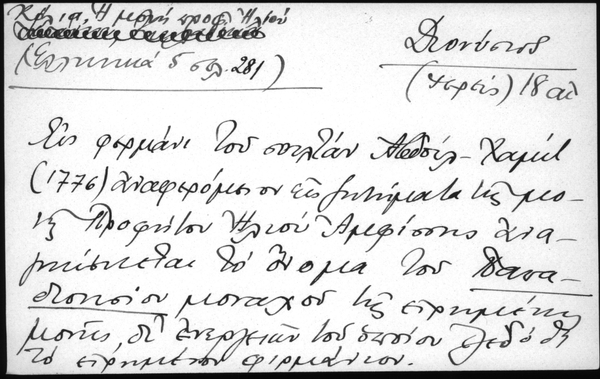 Κόλια, Ἡ μονή προφ. Ἠλιού
(Ἑλληνικά 5 σελ. 281)
Διονύσιος
(ἱερεύς) 18 αἰ
Εἰς φιρμάνι τοῦ σουλτάν Ἀβδούλ-Χαμίτ
(1776) ἀναφερόμενον εἰς ζητήματα τῆς μο-
νῆς Προφήτου Ἠλιού Ἀμφίσσης ἀνα-
γινώσκεται τό ὄνομα τοῦ Παπα-
διονυσίου μοναχοῦ τῆς εἰρημένης
μονῆς, δι' ἐνεργειῶν τοῦ ὁποίου ἐξεδόθη
τό εἰρημένον φιρμάνιον.